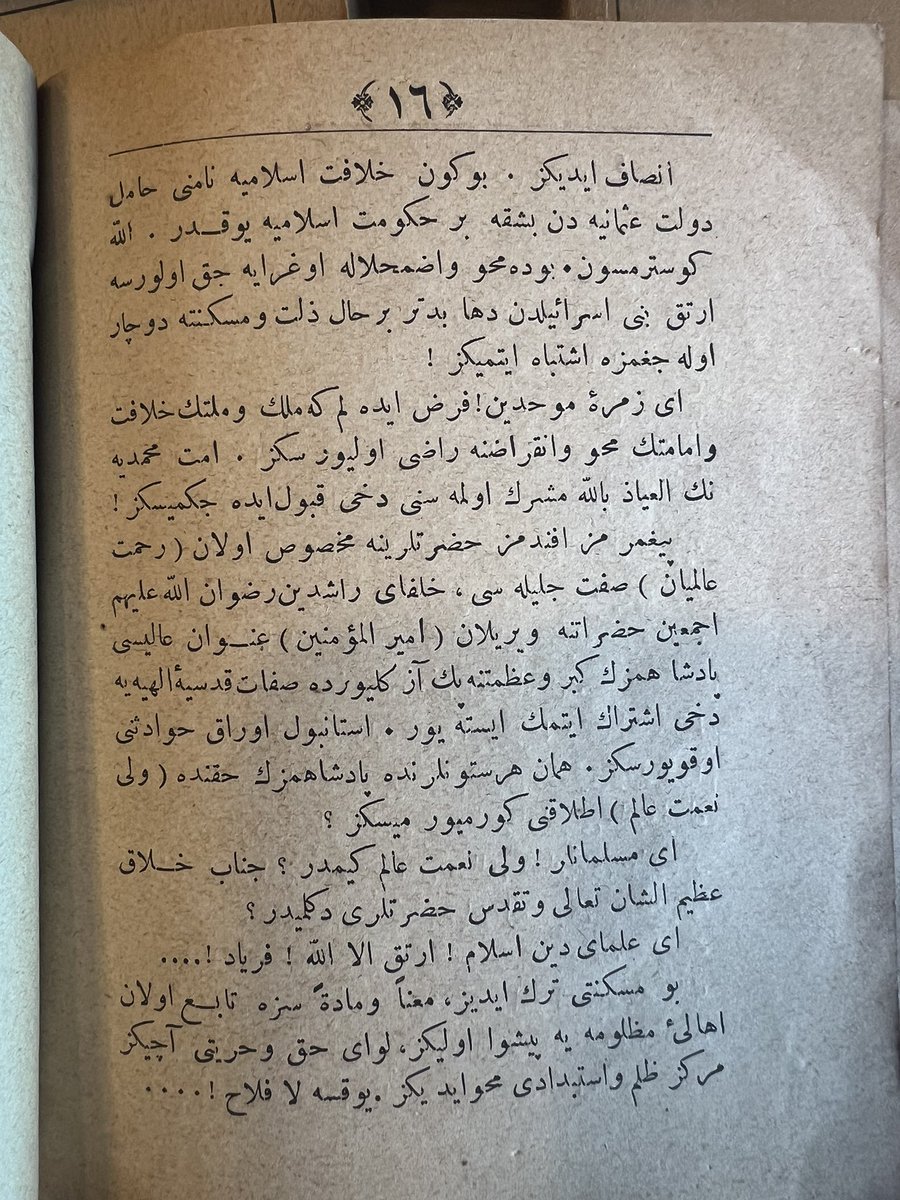 ﴿١٦﴾
انصاف ایدیكز . بوكون خلافت اسلامیه نامنی حامل
دولت عثمانیه دن بشقه بر حكومت اسلامیه یوقـدر . الله
كوسترمسون . بوده محو واضمحلاله اوغرایه جق اولورسه
ارتق بنی اسرائیلدن دها بدتر برحال ذلت ومسكنته دوچار
اوله جغمزه اشتباه ایتمیكز !
ای زمرهٔ موحدین! فرض ایده لم كه ملك وملتك خلافت
وامامتك محو وانقراضنه راضی اولیور سكز . امت محمدیه
نك العیاذ بالله مشرك اولمه سنی دخی قبول ایده جكمیسكز !
پیغمبر مز افندمز حضرتلرینه مخصوص اولان ( رحمت
عالمیان ) صفت جلیله سی ، خلفای راشدین رضوان الله علیهم
اجمعین حضراتنه ویریلان ( امیر المؤمنین ) عنـوان عالیسی
پادشا همزك كبر وعظمتنه پك آز كلیورده صفات قدسیهٔ الهیه یه
دخی اشتراك ایتمك ایسته یور . استانبول اوراق حوادثنی
اوقویورسكز . همان هرستونلرنده پادشاهمزك حقنده ( ولی
نعمت عالم ) اطلاقنی كورمیور میسكز ؟
ای مسلمانلر ! ولی نعمت عالم كیمدر ؟ جناب خـلاق
عظیم الشان تعالی وتقدس حضرتلری دكلمیدر ؟
ای علمای دین اسلام ! ارتق الا الله ! فریاد !....
بو مسكنتی ترك ایدیز ، معناً ومادةً سزه تابـع اولان
اهالیٔ مظلومه یه پیشوا اولیكز ، لوای حق وحریتی آچیكز
مركز ظلم واستبدادی محواید یكز . یوقسه لا فلاح !....